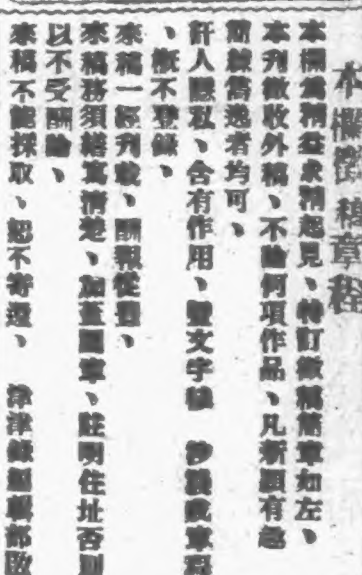 本欄徵稿章程
本欄為精益求精起見、特訂徵稿簡章如左、
本刊徵收外稿、不論何項作品、凡新穎有趣
雋逸者均可、
訐人隱私、含有作用、文字 涉
、概不登錄、
來稿一經刊載、酬報從豐、
來稿務須繕寫清楚、加蓋圖章、註明住址否則
以不受酬論、
來稿不能採取、恕不寄還、 津津 編輯部啟